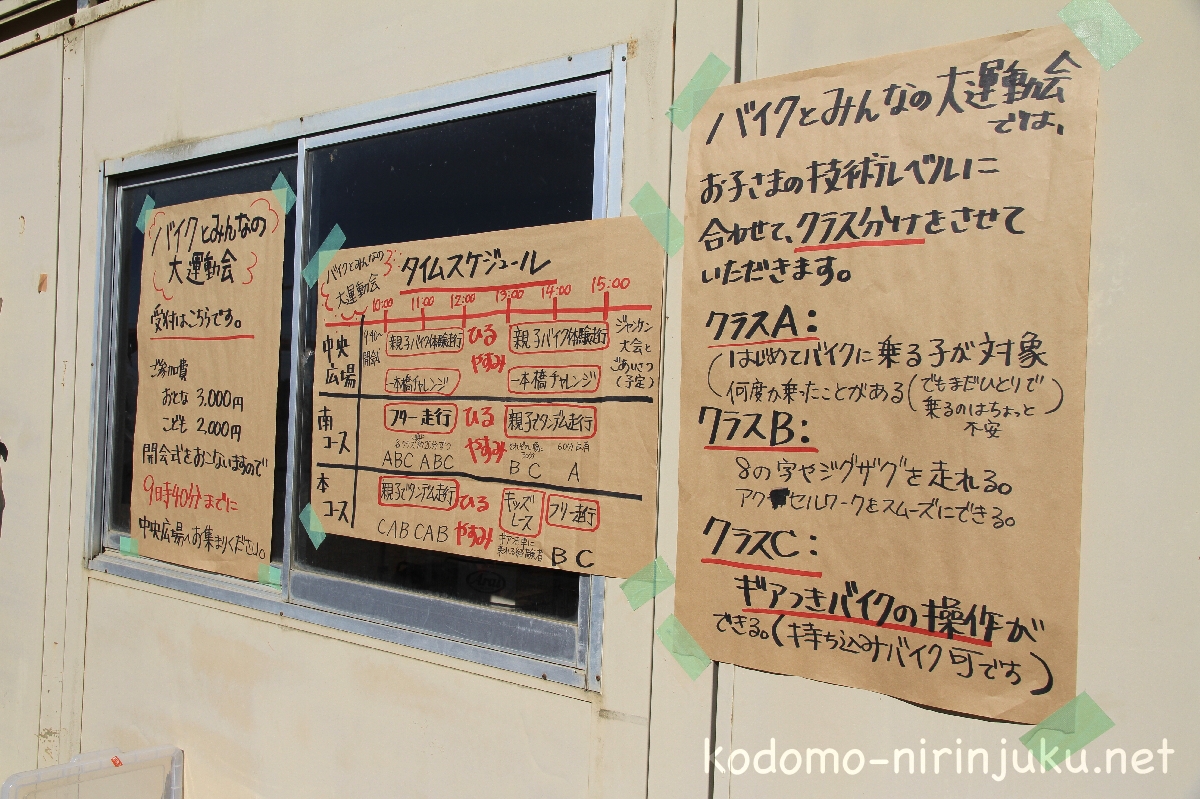 バイクとみんなの
大運動会
受付はこちらです。
ご参加費
おとな 3,000円
こども 2,000円
開会式をおこないますので
9時40分までに
中央広場へお集まりください。
バイクとみんなの
大運動会
タイムスケジュール
10:00 11:00 12:00 13:00 14:00 15:00
中央
広場
9:40~
開会式
親子バイク体験走行
一本橋チャレンジ
ひる
やすみ
親子バイク体験走行
一本橋チャレンジ
ジャンケン
大会と
ごあいさつ
(予定)
南
コース
フリー走行
ABC ABC
ひる
やすみ
親子でタンデム走行
B C A
本
コース
親子でタンデム走行
CAB CAB
ひる
やすみ
キッズ
レース
フリー走行
B C
バイクとみんなの大運動会
では、
お子さまの技術レベルに
合わせて、クラス分けをさせて
いただきます。
クラスA:
(はじめてバイクに乗る子が対象
何度か乗ったことがある(でもまだひとりで
乗るのはちょっと
不安)
クラスB:
8の字やジグザグを走れる。
アクセルワークをスムーズにできる。
クラスC:
ギアつきバイクの操作が
できる。(持ち込みバイク可です)
kodomo-nirinjuku.net